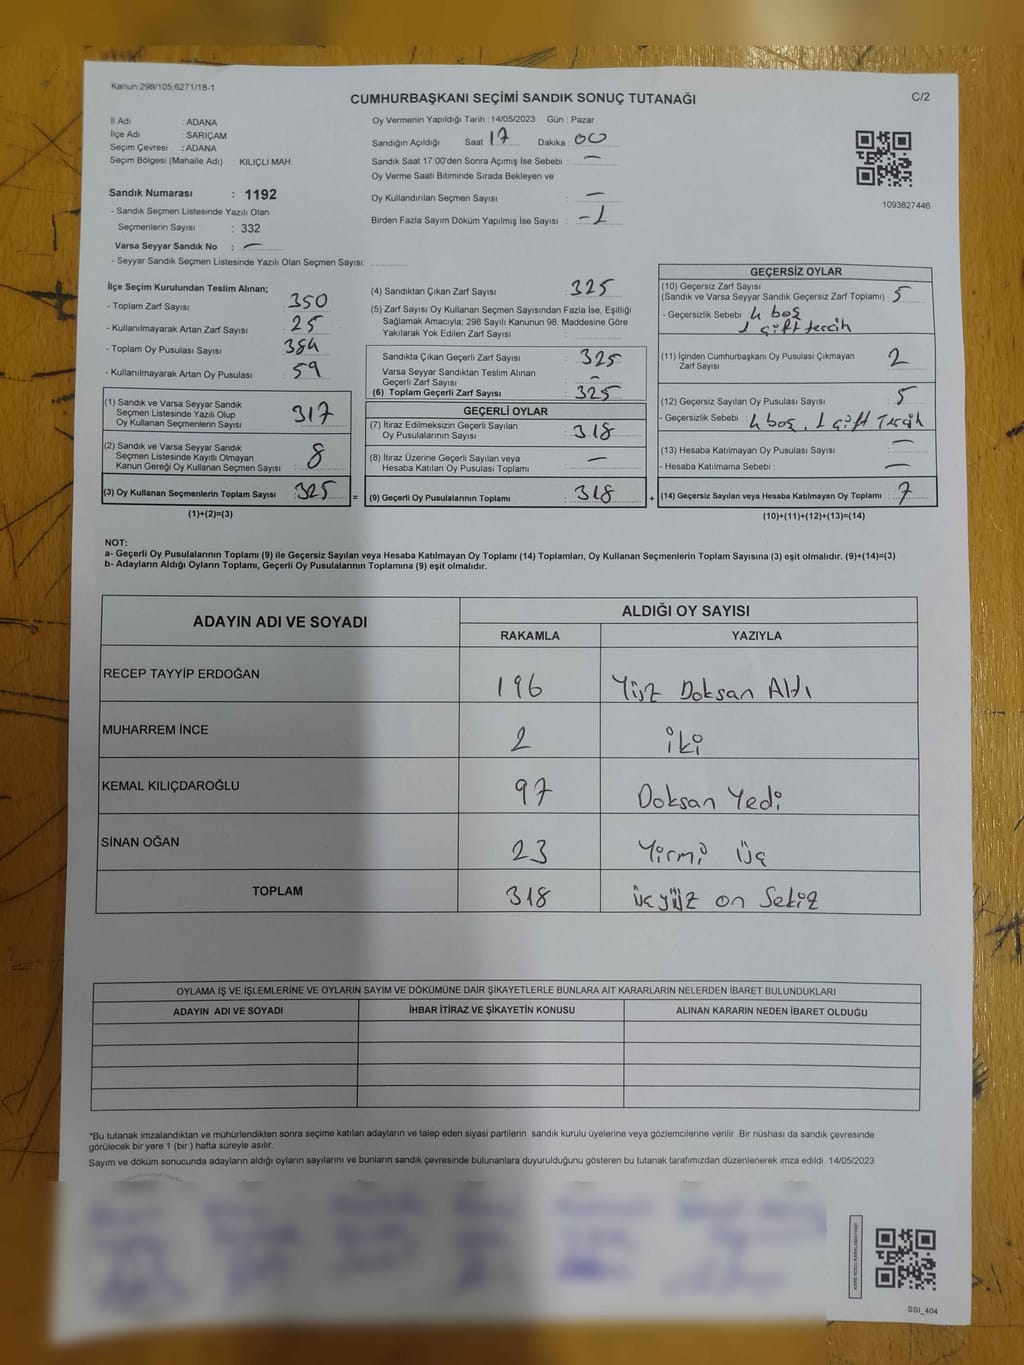 Kanun;298/105;6271/18-1
CUMHURBAŞKANI SEÇİMİ SANDIK SONUÇ TUTANAĞI
C/2
İl Adı : ADANA
İlçe Adı : SARIÇAM
Seçim Çevresi : ADANA
Seçim Bölgesi (Mahalle Adı) : KILIÇLI MAH.
Sandık Numarası : 1192
- Sandık Seçmen Listesinde Yazılı Olan
Seçmenlerin Sayısı : 332
Varsa Seyyar Sandık No : —
- Seyyar Sandık Seçmen Listesinde Yazılı Olan Seçmen Sayısı:
Oy Vermenin Yapıldığı Tarih : 14/05/2023 Gün : Pazar
Sandığın Açıldığı Saat 17 Dakika : 00
Sandık Saat 17:00'den Sonra Açımış İse Sebebi : —
Oy Verme Saati Bitiminde Sırada Bekleyen ve
Oy Kullandırılan Seçmen Sayısı : —
Birden Fazla Sayım Döküm Yapılmış İse Sayısı : -1
1093827446
İlçe Seçim Kurulundan Teslim Alınan;
- Toplam Zarf Sayısı : 350
- Kullanılmayarak Artan Zarf Sayısı : 25
- Toplam Oy Pusulası Sayısı : 384
- Kullanılmayarak Artan Oy Pusulası : 59
(1) Sandık ve Varsa Seyyar Sandık
Seçmen Listesinde Yazılı Olup
Oy Kullanan Seçmenlerin Sayısı : 317
(2) Sandık ve Varsa Seyyar Sandık
Seçmen Listesinde Kayıtlı Olmayan
Kanun Gereği Oy Kullanan Seçmen Sayısı : 8
(3) Oy Kullanan Seçmenlerin Toplam Sayısı : 325
(1)+(2)=(3)
(4) Sandıktan Çıkan Zarf Sayısı : 325
(5) Zarf Sayısı Oy Kullanan Seçmen Sayısından Fazla İse, Eşitliği
Sağlamak Amacıyla; 298 Sayılı Kanunun 98. Maddesine Göre
Yakılarak Yok Edilen Zarf Sayısı :
Sandıkta Çıkan Geçerli Zarf Sayısı : 325
Varsa Seyyar Sandıktan Teslim Alınan
Geçerli Zarf Sayısı : —
(6) Toplam Geçerli Zarf Sayısı : 325
GEÇERLİ OYLAR
(7) İtiraz Edilmeksizin Geçerli Sayılan
Oy Pusulalarının Sayısı : 318
(8) İtiraz Üzerine Geçerli Sayılan veya
Hesaba Katılan Oy Pusulası Toplamı : —
= (9) Geçerli Oy Pusulalarının Toplamı : 318 +
GEÇERSİZ OYLAR
(10) Geçersiz Zarf Sayısı
(Sandık ve Varsa Seyyar Sandık Geçersiz Zarf Toplamı) : 5
- Geçersizlik Sebebi : 4 boş
1 çift tercih
(11) İçinden Cumhurbaşkanı Oy Pusulası Çıkmayan
Zarf Sayısı : 2
(12) Geçersiz Sayılan Oy Pusulası Sayısı : 5
- Geçersizlik Sebebi : 4 boş, 1 çift Tercih
(13) Hesaba Katılmayan Oy Pusulası Sayısı : —
- Hesaba Katılmama Sebebi : —
(14) Geçersiz Sayılan veya Hesaba Katılmayan Oy Toplamı : 7
(10)+(11)+(12)+(13)=(14)
NOT:
a- Geçerli Oy Pusulalarının Toplamı (9) ile Geçersiz Sayılan veya Hesaba Katılmayan Oy Toplamı (14) Toplamları, Oy Kullanan Seçmenlerin Toplam Sayısına (3) eşit olmalıdır. (9)+(14)=(3)
b- Adayların Aldığı Oyların Toplamı, Geçerli Oy Pusulalarının Toplamına (9) eşit olmalıdır.
ADAYIN ADI VE SOYADI
ALDIĞI OY SAYISI
RAKAMLA YAZIYLA
RECEP TAYYİP ERDOĞAN 196 Yüz Doksan Altı
MUHARREM İNCE 2 iki
KEMAL KILIÇDAROĞLU 97 Doksan Yedi
SİNAN OĞAN 23 Yirmi Üç
TOPLAM 318 üçyüz on Sekiz
OYLAMA İŞ VE İŞLEMLERİNE VE OYLARIN SAYIM VE DÖKÜMÜNE DAİR ŞİKAYETLERLE BUNLARA AİT KARARLARIN NELERDEN İBARET BULUNDUKLARI
ADAYIN ADI VE SOYADI İHBAR İTİRAZ VE ŞİKAYETİN KONUSU ALINAN KARARIN NEDEN İBARET OLDUĞU
*Bu tutanak imzalandıktan ve mühürlendikten sonra seçime katılan adayların ve talep eden siyasi partilerin sandık kurulu üyelerine veya gözlemcilerine verilir .Bir nüshası da sandık çevresinde
görülecek bir yere 1 (bir ) hafta süreyle asılır.
Sayım ve döküm sonucunda adayların aldığı oyların sayılarını ve bunların sandık çevresinde bulunanlara duyurulduğunu gösteren bu tutanak tarafımızdan düzenlenerek imza edildi. 14/05/2023
KARE KODU KARALAMAYINIZ!
SSI_404